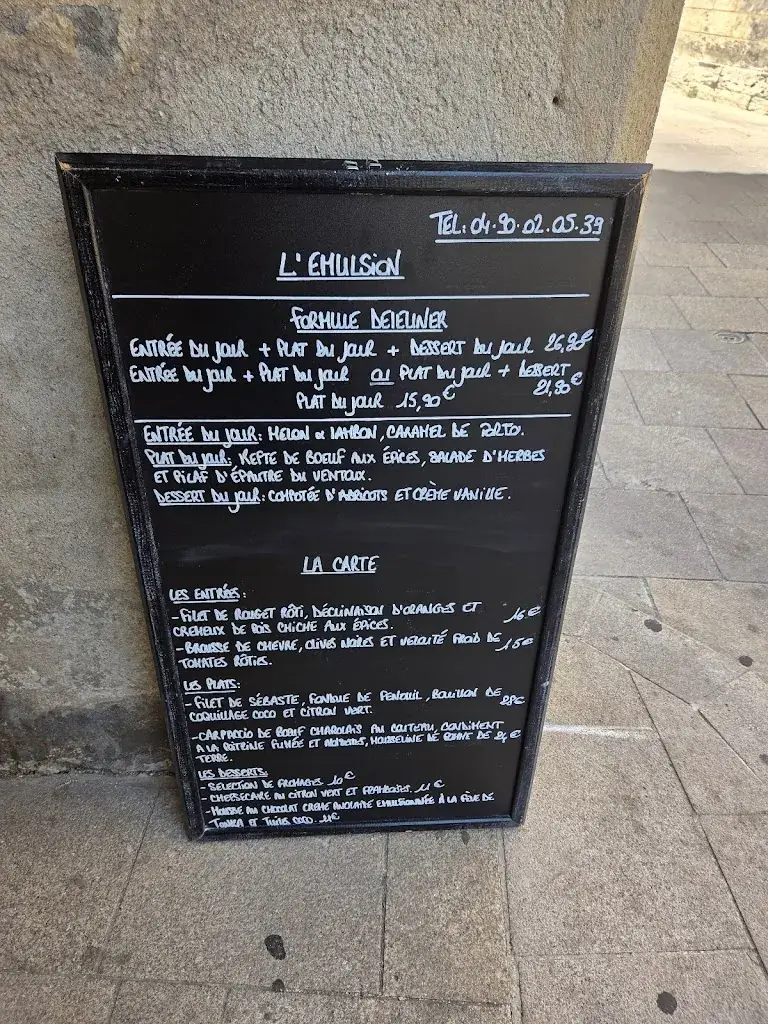 TEL: 04.90.02.05.39
L'EMULSION
FORMULE DEJEUNER
ENTRÉE DU JOUR + PLAT DU JOUR + DESSERT DU JOUR 26,90€
ENTRÉE DU JOUR + PLAT DU JOUR OU PLAT DU JOUR + DESSERT
21,90€
PLAT DU JOUR 15,90€
ENTRÉE DU JOUR: MELON et JAMBON, CARAMEL DE PORTO.
PLAT DU JOUR: KEFTE DE BOEUF AUX ÉPICES, SALADE D'HERBES
ET PILAF D'ÉPAUTRE DU VENTOUX.
DESSERT DU JOUR: COMPOTÉE D'ABRICOTS ET CRÈME VANILLE.
LA CARTE
LES ENTRÉES:
- FILET DE ROUGET RÔTI, DÉCLINAISON D'ORANGES ET 16€
CREMEUX DE POIS CHICHE AUX ÉPICES.
- BROUSSE DE CHEVRE, OLIVES NOIRES ET VELOUTÉ FROID DE 15€
TOMATES RÔTIES.
LES PLATS:
- FILET DE SÉBASTE, FONDUE DE FENOUIL, BOUILLON DE
COQUILLAGE COCO ET CITRON VERT.
- CARPACCIO DE BOEUF CHAROLAIS AU COUTEAU, CONDIMENT
A LA POITRINE FUMÉE ET MOUSSELINE DE POMME DE
TERRE.
LES DESSERTS
- SELECTION DE FROMAGES 10€
- CHEESECAKE AU CITRON VERT ET FRAMBOISES. 11€
- MOUSSE AU CHOCOLAT CREME ANGLAISE EMULSIONNÉE À LA FÈVE DE
TONKA ET TUILES COCO. 11€